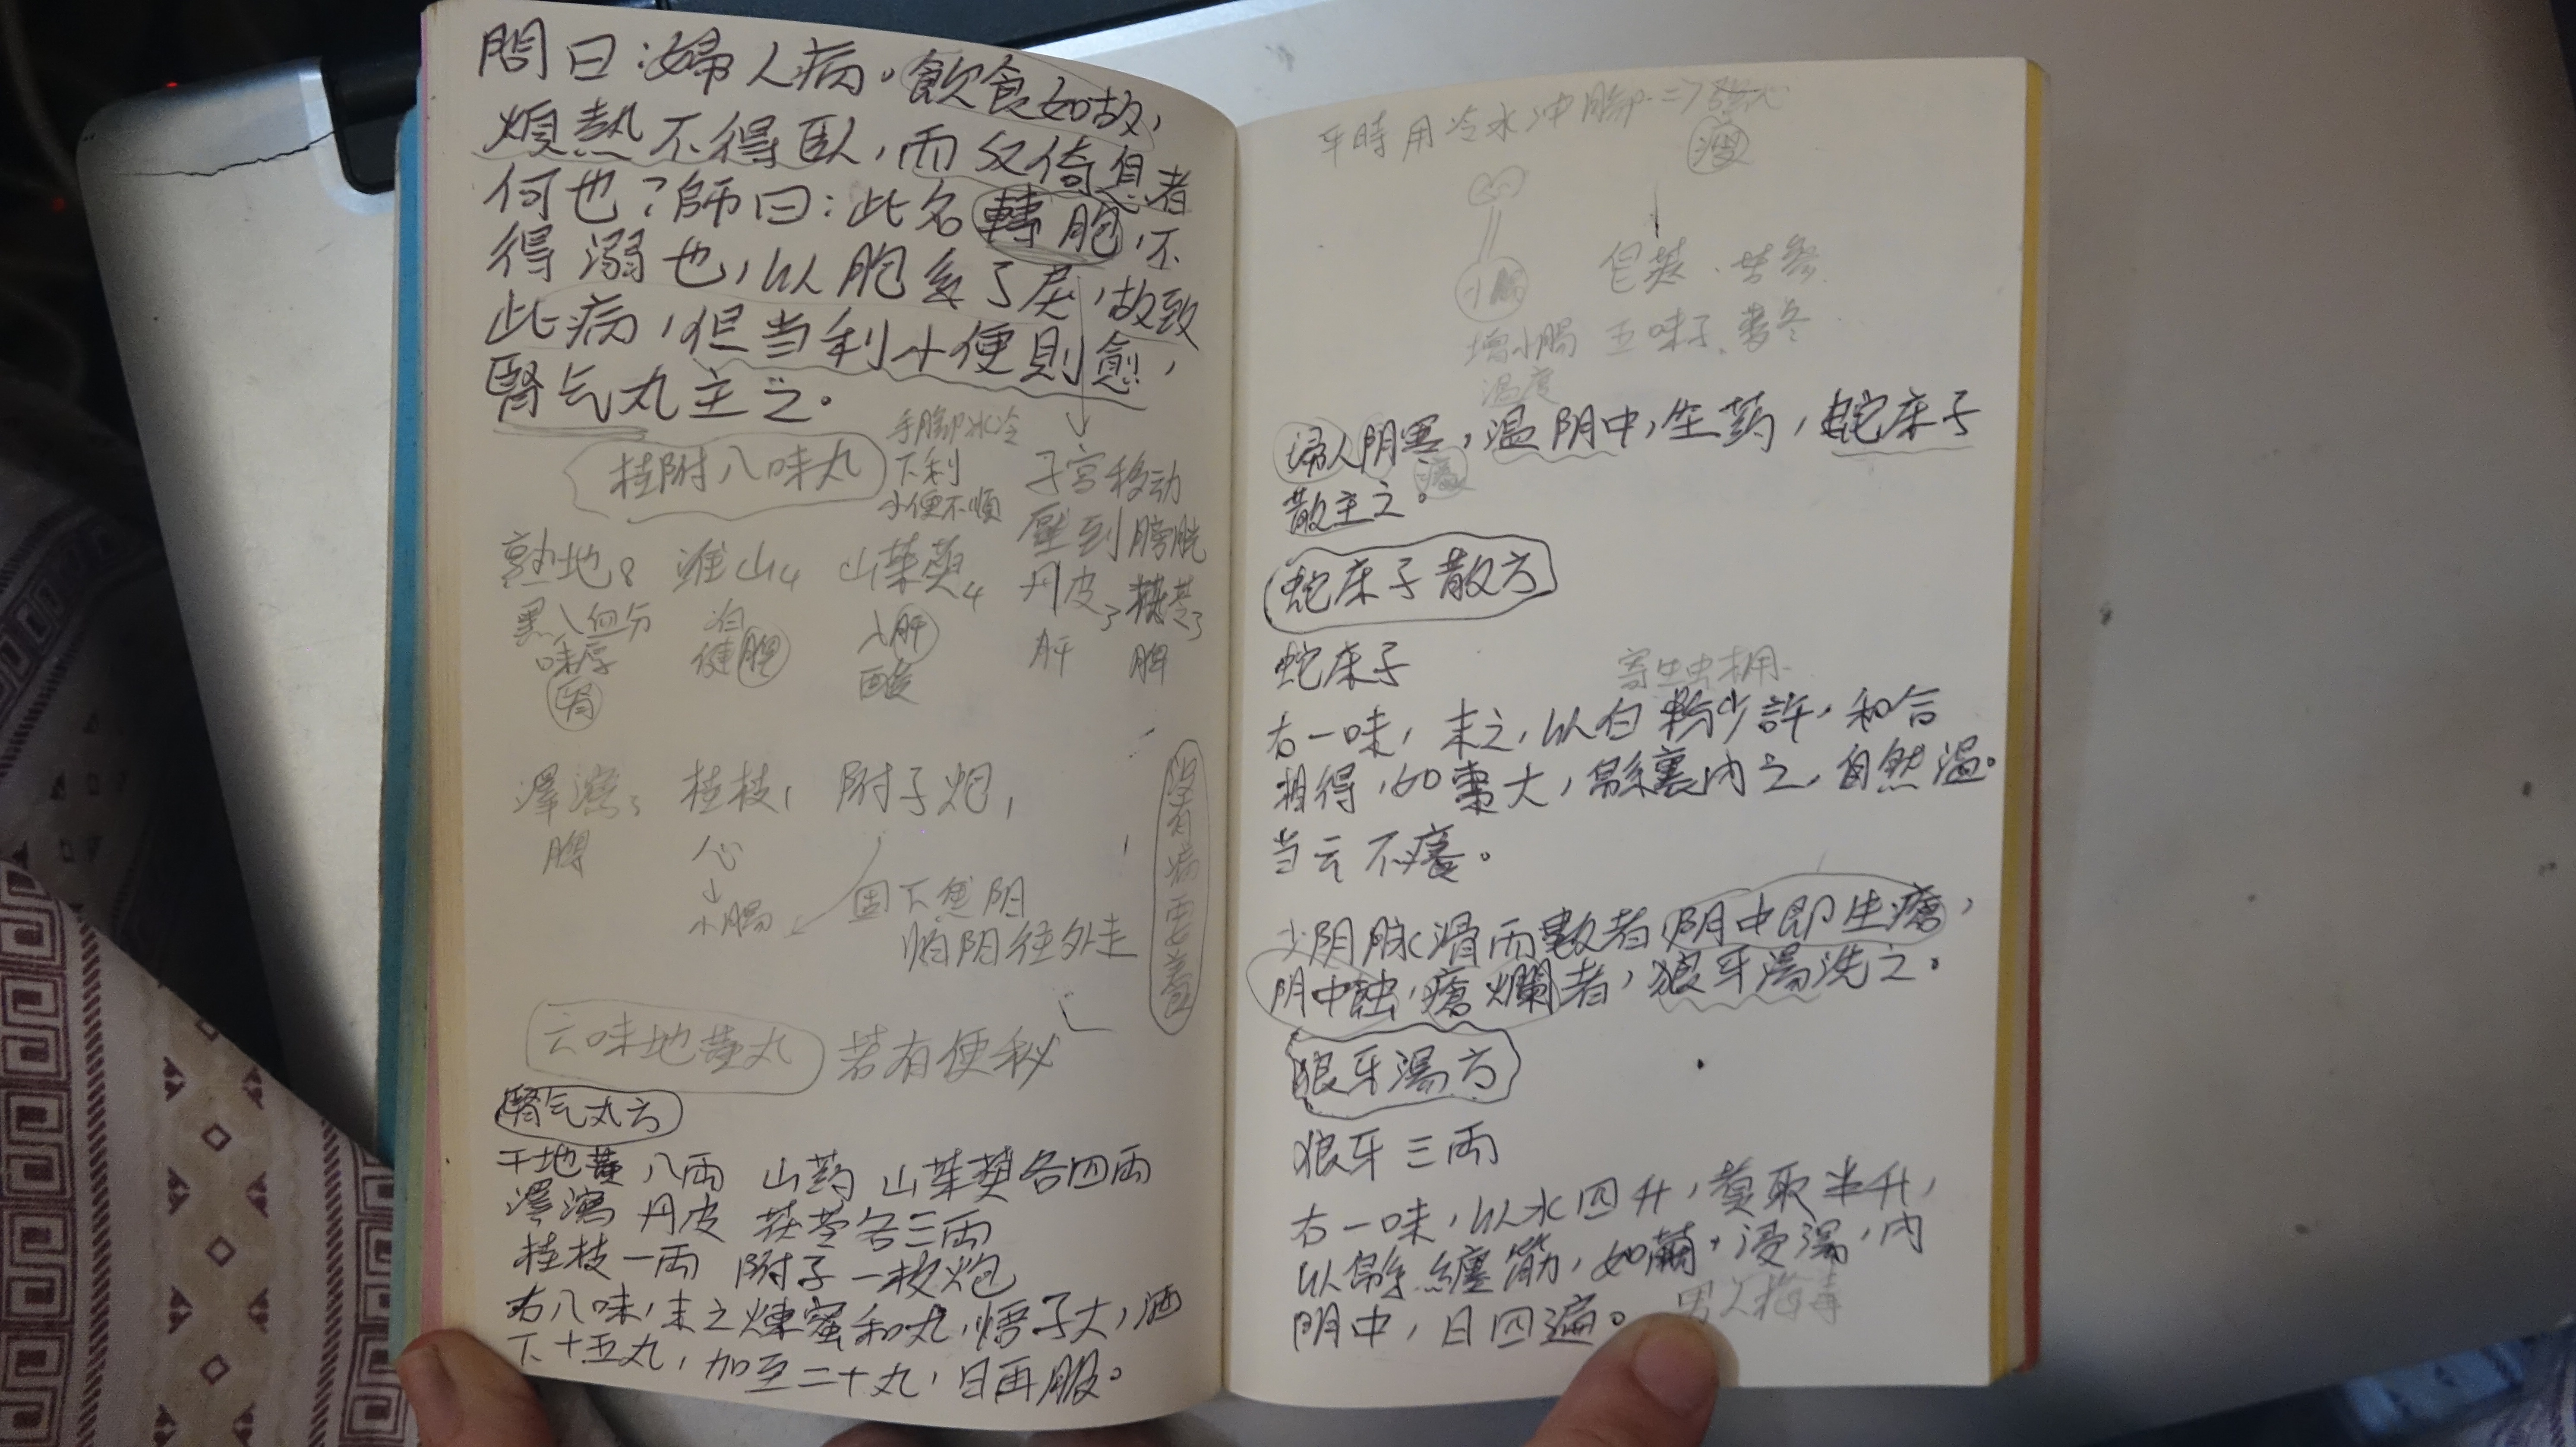 問曰：婦人病。飲食如故，
煩熱不得臥，而反倚息者
何也？師曰：此名轉胞，不
得溺也，以胞系了戾，故致
此病，但当利小便則愈，
腎气丸主之。
桂附八味丸
手腳冰冷
下利
小便不順
子宮移动
壓到膀胱
熟地8 淮山4 山茱萸4 丹皮3 茯苓3
黑入血分
味厚
腎
健脾
入肝
酸
肝
脾
澤瀉3 桂枝1 附子炮1
心
↓
小腸
固下焦阴
阴往外走
六味地黄丸 若有便秘
腎气丸方
干地黄八両 山药 山茱萸各四両
澤瀉 丹皮 茯苓各三両
桂枝一両 附子一枚炮
右八味，末之煉蜜和丸，梧子大，酒
下十五丸，加至二十丸，日再服。
平時用冷水冲腳
瘦
小腸
增小腸
温度
苦參
五味子、麥冬
婦人阴寒，温阴中，生药，蛇床子
散主之。
蛇床子散方
蛇床子
寄生虫
右一味，末之，以白粉少許，和合
相得，如棗大，綿裏内之，自然温。
当云不癢。
少阴脉滑而數者，阴中即生瘡，
阴中蝕，瘡爛者，狼牙湯洗之。
狼牙湯方
狼牙三両
右一味，以水四升，煮取半升，
以綿纏筋，如繭，浸湯，内
阴中，日四遍。
男人梅毒